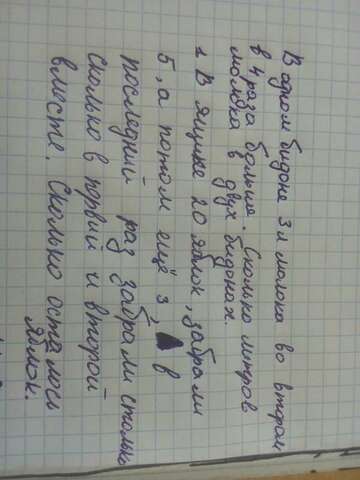 В одном бидоне 3 л молока во втором
в 4 раза больше. Сколько литров
молока в двух бидонах.
1. В ящике 20 яблок, забрали
5, а потом ещё 3, в
последний раз забрали столько
сколько в первый и второй
вместе. Сколько осталось
яблок.